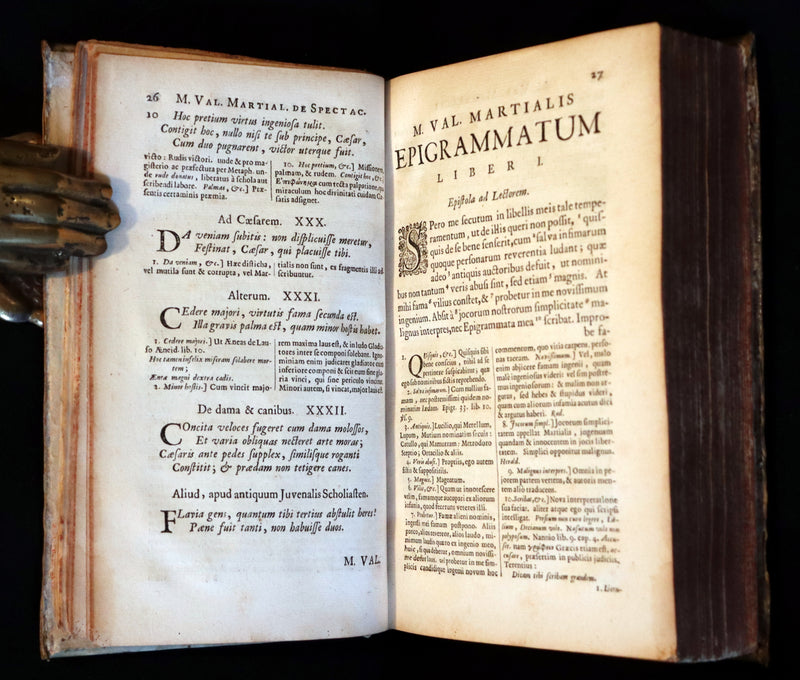 26 M. VAL. MARTIAL. DE SPECTAC.
10 Hoc pretium virtus ingeniosa tulit.
Contigit hoc, nullo nisi te sub principe, Cæsar,
Cum duo pugnarent, victor uterque fuit.
victo: Rudis victori. unde & pro ma-
gisterio ac præfectura per Metaph. un-
de rude donatus, liberatus à schola aut
scribendi labore. Palmas, &c.] Præ-
sentis certaminis præmia.
10. Hoc pretium, &c.] Missionem,
palmam, & rudem. Contigit hoc, &c.]
cum tecta palpatione, quasi
miraculum hoc divinitati cuidam Cæ-
saris adsignet.
Ad Cæsarem. XXX.
DA veniam subitis: non displicuisse meretur,
Festinat, Cæsar, qui placuisse tibi.
1. Da veniam, &c.] Hæc disticha,
vel mutila sunt & corrupta, vel Mar-
tialis non sunt, ex fragmentis illi ad-
scribuntur.
Alterum. XXXI.
CEdere majori, virtutis fama secunda est.
Illa gravis palma est, quam minor hostis habet.
1. Cedere majori.] Ut Æneas de Lau-
so Æneid. lib. 10.
Hoc tamen infelix miseram solabere mor-
tem;
Æneæ magni dextra cadis.
2. Minor hostis.] Cum vincit majo-
rem maxima laus est, & in ludo Gladia-
tores inter se componi solebant. Igno-
miniam enim judicaret gladiator cum
inferiore componi & sciret eum sine glo-
ria vinci, qui sine periculo vincitur.
Minori autem, si vincat, major laus est.
De dama & canibus. XXXII.
COncita veloces fugeret cum dama molossos,
Et varia obliquas necteret arte moras;
Cæsaris ante pedes supplex, similisque roganti
Constitit; & prædam non tetigere canes.
Aliud, apud antiquum Juvenalis Scholiasten.
FLavia gens, quantum tibi tertius abstulit heres!
Pæne fuit tanti, non habuisse duos.
M. VAL.
27
M. VAL. MARTIALIS
EPIGRAMMATUM
LIBER I.
Epistola ad Lectorem.
SPero me secutum in libellis meis tale tempe-
ramentum, ut de illis queri non possit, quis-
quis de se bene senserit, cum salva infimarum
quoque personarum reverentia ludant; quæ
adeo antiquis auctoribus defuit, ut nomini-
bus non tantum veris abusi sint, sed etiam magnis. At
mihi fama vilius constet, & probetur in me novissimum
ingenium. Absit à jocorum nostrorum simplicitate ma-
lignus interpres, nec Epigrammata mea scribat. Impro-
be fa-
1. QUisquis, &c.] Quisquis sibi
bene conscius, nihil ad se
pertinere suspicabitur; quæ
ego sub nominibus fictis reprehendo.
2. Salva infimarum.] Cum nullius fa-
mam, nec postremissimi quidem no-
minatim lædam. Epig. 33. lib. 10.
9.
3. Antiquis.] Lucilio, qui Metellum,
Lupum, Mutium nominatim siculit:
Catullo, qui Mamurram: Metrodoro
Serptio; Octavilio & aliis.
4. Veris abusi.] Propriis, ego autem
fictis & suppositiis.
5. Magnis.] Magnatum.
6. Vilius, &c.] Quam ut innotescere
velim, famamque aucupari ex aliorum
infamia, quod fecerunt veteres illi.
7. Probetur.] Fama alieni nominis,
ingenii mei famam postpono. Aliis
porro, alios mereter, alios laudo, mi-
nimum laudo quæro ex ingenio meo,
huic, si qua debetur, omnium novissi-
me deferri laus. vel probetur in me sim-
plicis candidique ingeni novum hoc
commentum, quo vitia carpere, perso-
nas taceam. Novissimum.] Vel, malo
enim abjicere famam ingenii, quam
mali ingeniosus videri: vel sim postre-
mus ingeniosorum: & malim non ar-
gutus, sed hebes & stupidus videri,
quam cum aliorum infamia acutus dici
& argutus haberi. Rad.
8. Jocorum simpl.] Jocorum simplici-
tatem appellat Martialis, ingenuam
quandam & innocentem in jocis liber-
tatem. Simplici opponitur malignus.
Herald.
9. Malignus interpres.] Omnia in pe-
jorem partem vertens, & auctoris men-
tem alio traducens.
10. Scribat, &c.] Nova interpretatione
sua faciat, aliter atque ego qui scripsi
intelligat. Persium non curo legere, Læ-
lium, Decimum volo. Nasutum volo, nolo
polyposum. Nannio lib. 9. cap. 4. Accu-
set. nam γράφειν Græcis etiam est, ac-
cusare, præsertim in publicis judiciis.
Terentius:
Dicam tibi scribam grandem.
1. Licen-